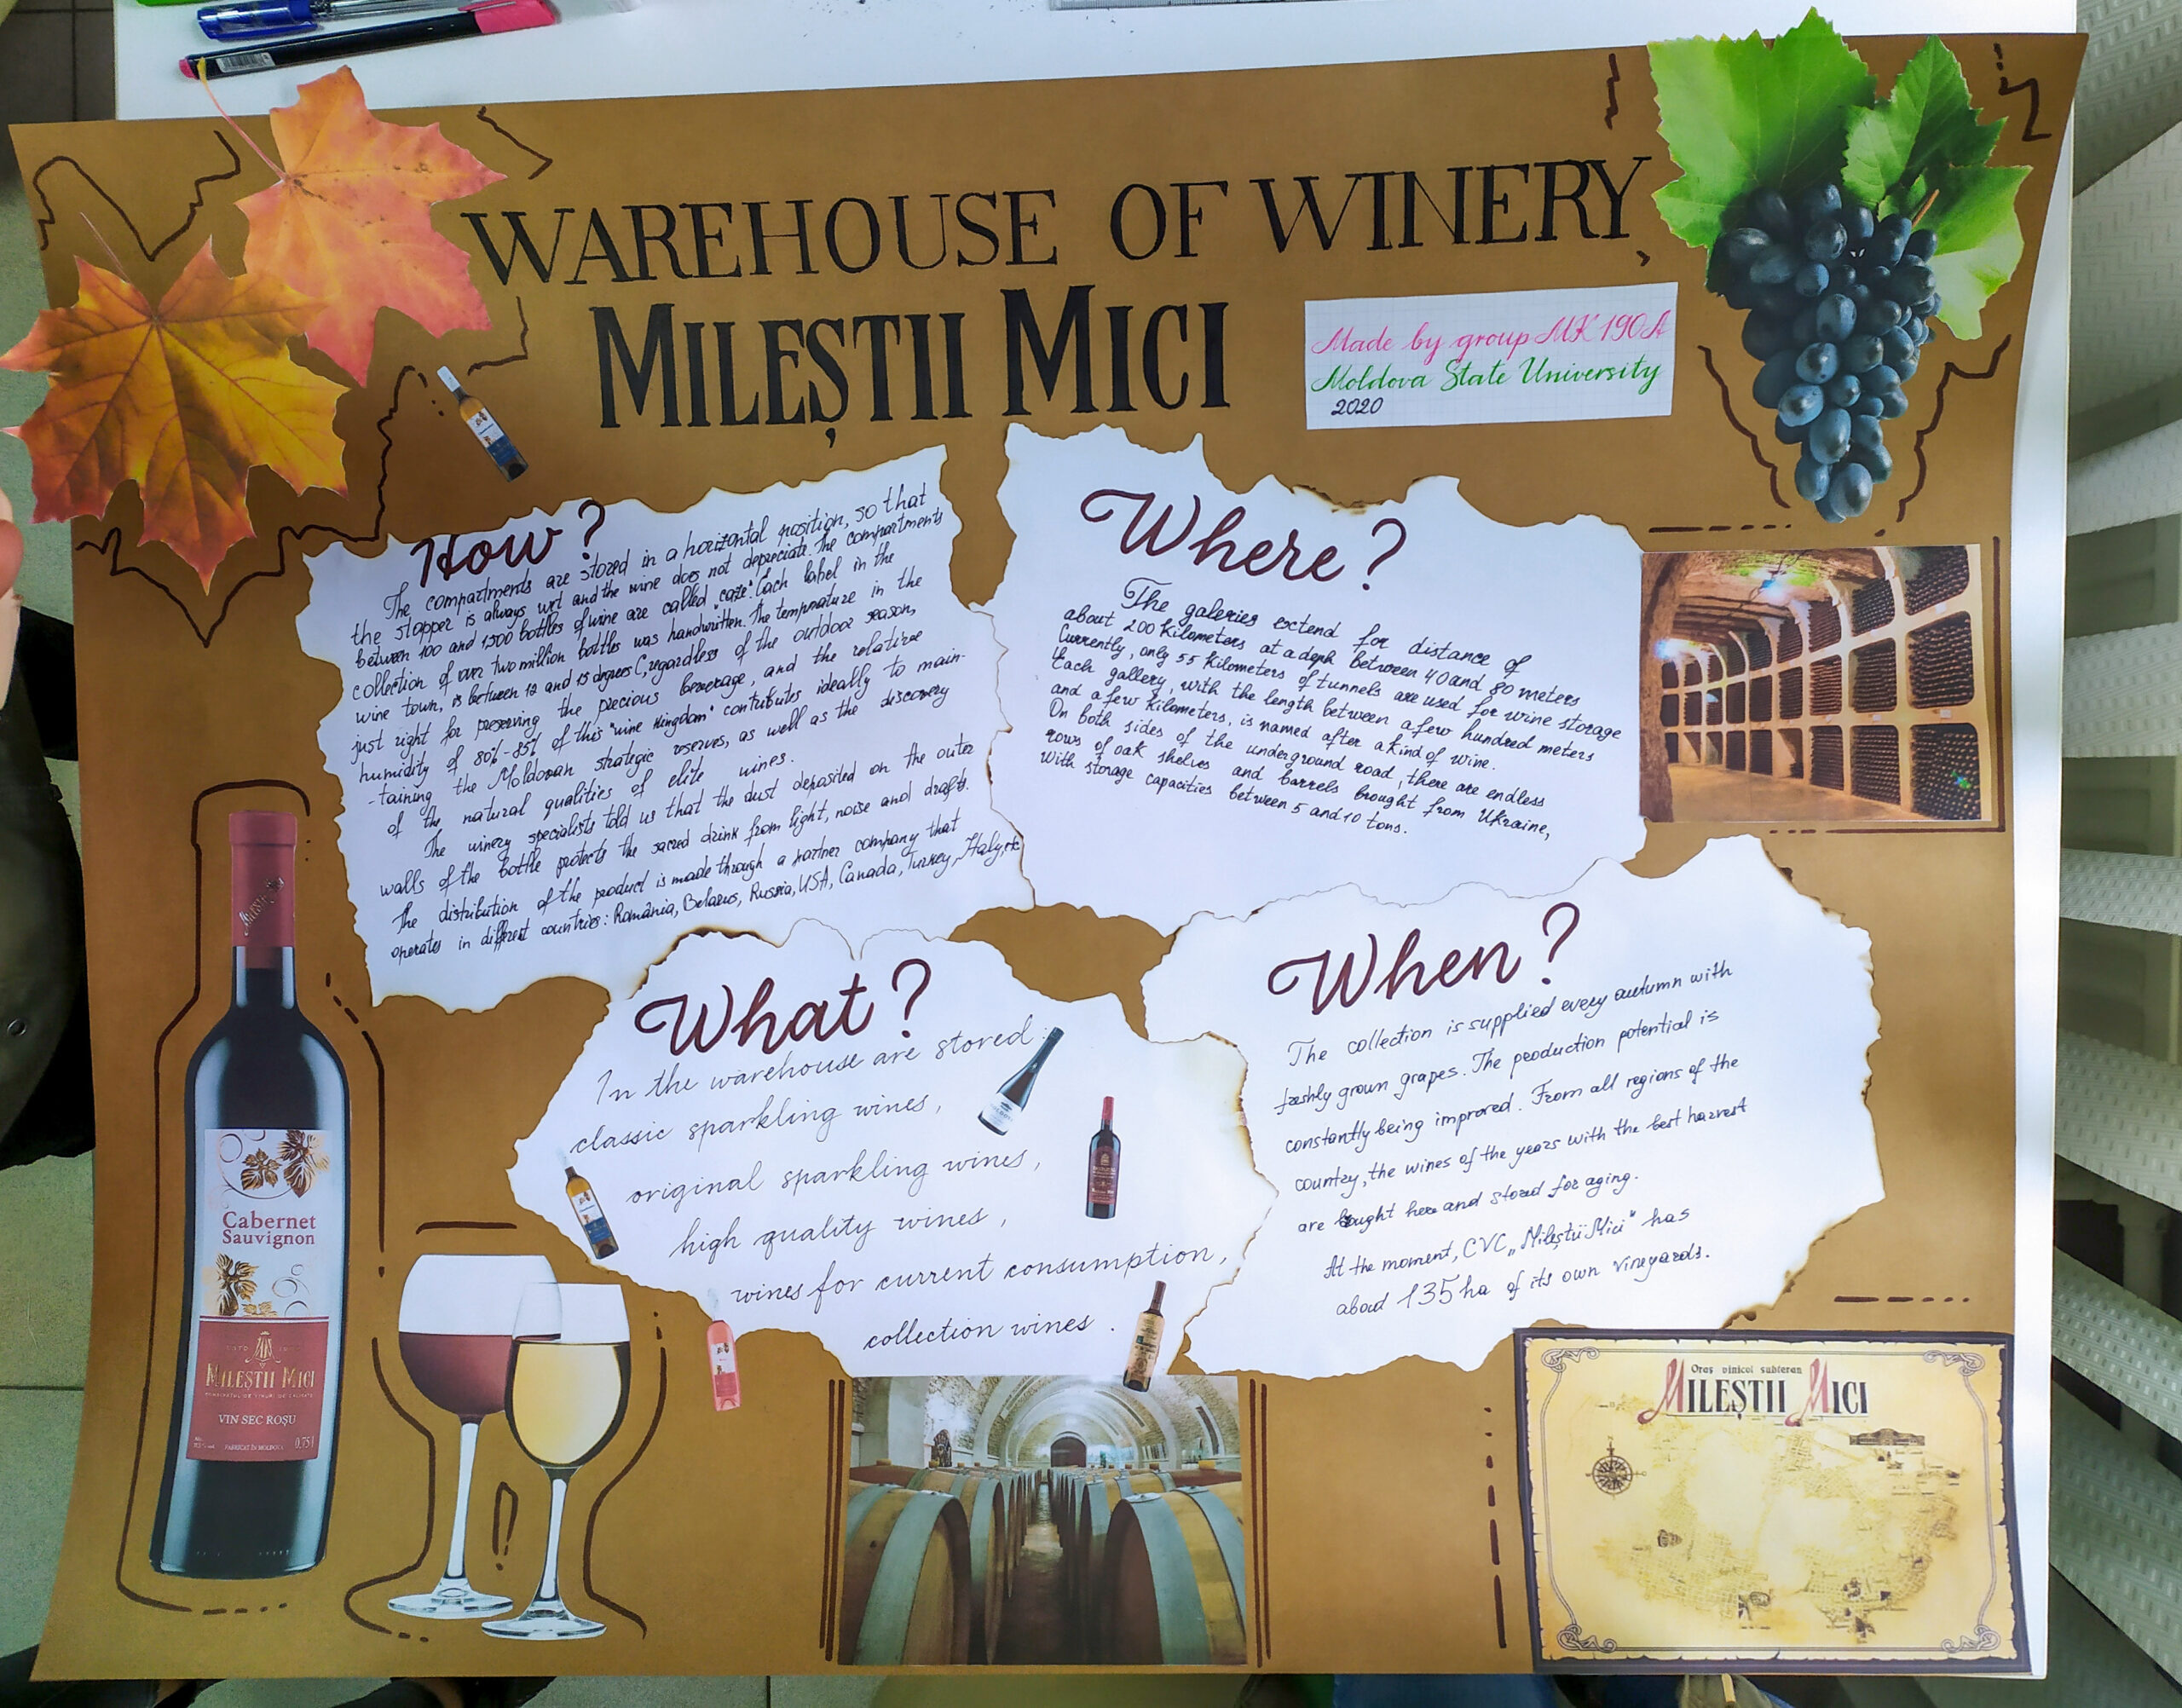 WAREHOUSE OF WINERY,
MILEȘTII MICI
Made by group MK 190A
Moldova State University
2020
How?
The compartments are stored in a horizontal position, so that
the stopper is always wet and the wine does not depreciate. The compartments
between 100 and 1500 bottles of wine are called "caze". Each label in the
collection of over two million bottles was handwritten. The temperature in the
wine town, is between 12 and 15 degrees C, regardless of the outdoor season,
just right for preserving the precious beverage, and the relative
humidity of 80%-85% of this "wine kingdom" contributes ideally to main-
-taining the Moldovan strategic reserves, as well as the discovery
of the natural qualities of elite wines.
The winery specialists told us that the dust deposited on the outer
walls of the bottle protects the sacred drink from light, noise and drafts.
The distribution of the product is made through a partner company that
operates in different countries: România, Belarus, Russia, USA, Canada, Turkey, Italy, etc
Where?
The galeries extend for distance of
about 200 kilometers at a deph between 40 and 80 meters
Currently, only 55 kilometers of tunnels are used for wine storage
Each gallery, with the length between a few hundred meters
and a few kilometers, is named after a kind of wine.
On both sides of the underground road, there are endless
rows of oak shelves and barrels brought from Ukraine,
with storage capacities between 5 and 10 tons.
What?
In the warehouse are stored:
classic sparkling wines,
original sparkling wines,
high quality wines,
wines for current consumption,
collection wines.
When?
The collection is supplied every autumn with
freshly grown grapes. The production potential is
constantly being improved. From all regions of the
country, the wines of the years with the best harvest
are bought here and stored for aging.
At the moment, CVC „Mileștii Mici" has
about 135 ha of its own vineyards.
Cabernet
Sauvignon
MILEȘTII MICI
VIN SEC ROȘU
FABRICAT ÎN MOLDOVA 0,75l
Oraș vinicol subteran
MILEȘTII MICI